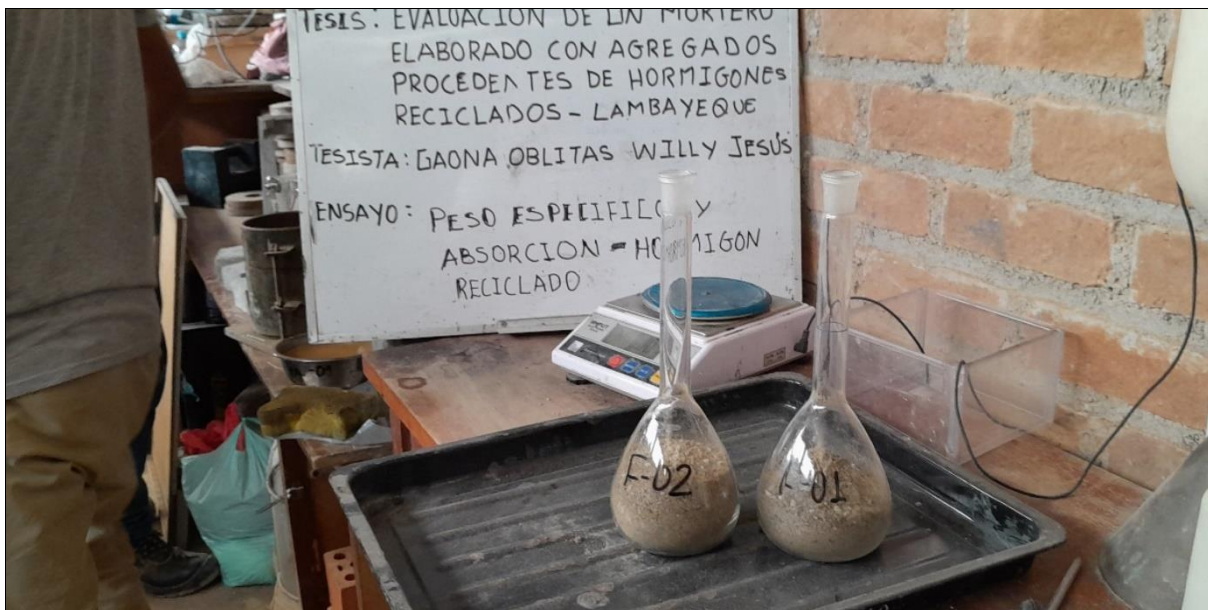 TESIS: EVALUACION DE UN MORTERO
ELABORADO CON AGREGADOS
PROCEDENTES DE HORMIGONES
RECICLADOS - LAMBAYEQUE
TESISTA: GAONA OBLITAS WILLY JESÚS
ENSAYO: PESO ESPECIFICO Y
ABSORCION - HORMIGON
RECICLADO
F-02
F-01